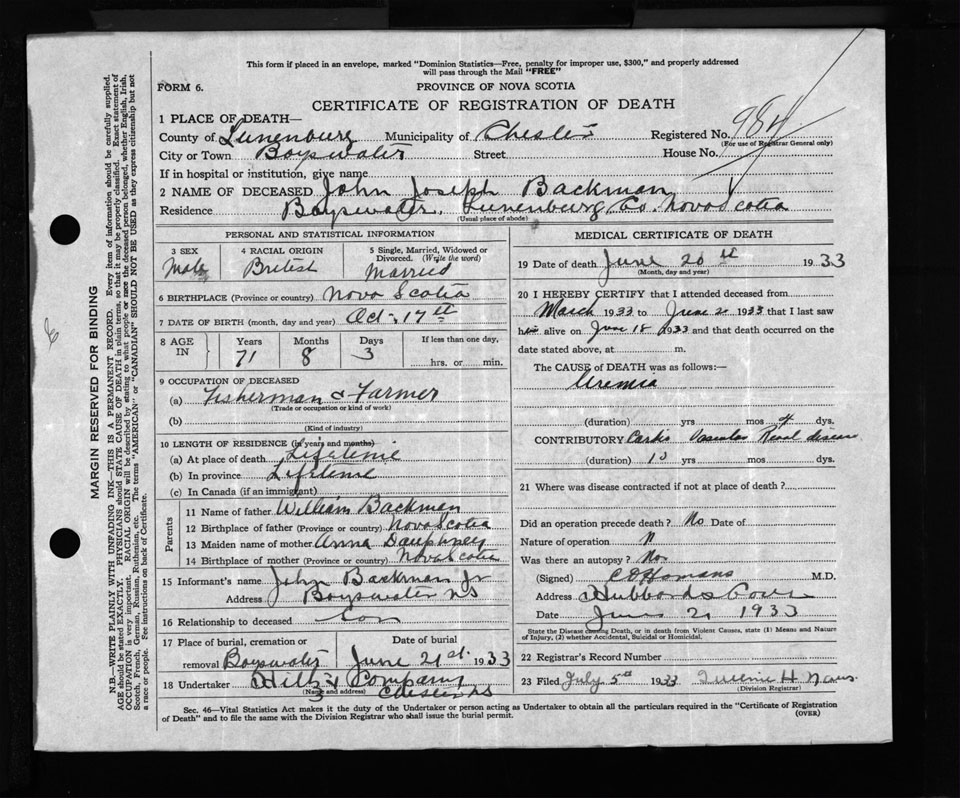 This form if placed in an envelope, marked "Dominion Statistics—Free, penalty for improper use, $300," and properly addressed
will pass through the Mail "FREE"
FORM 6. PROVINCE OF NOVA SCOTIA
CERTIFICATE OF REGISTRATION OF DEATH
1 PLACE OF DEATH—
County of Lunenburg Municipality of Chester Registered No.
(For use of Registrar General only)
City or Town Bayswater Street House No.
If in hospital or institution, give name
2 NAME OF DECEASED John Joseph Backman
Residence Bayswater, Lunenburg, Co. Nova Scotia
(Usual place of abode)
PERSONAL AND STATISTICAL INFORMATION
3 SEX 4 RACIAL ORIGIN 5 Single, Married, Widowed or
Divorced. (Write the word)
Male British Married
6 BIRTHPLACE (Province or country) Nova Scotia
7 DATE OF BIRTH (month, day and year) Oct. 17th
8 AGE IN Years Months Days If less than one day,
71 8 3 hrs. or min.
9 OCCUPATION OF DECEASED
(a) Fisherman & Farmer
(Trade or occupation or kind of work)
(b)
(Kind of industry)
10 LENGTH OF RESIDENCE (in years and months)
(a) At place of death Lifetime
(b) In province Lifetime
(c) In Canada (if an immigrant)
Parents
11 Name of father William Backman
12 Birthplace of father (Province or country) Nova Scotia
13 Maiden name of mother Anna Dauphney
14 Birthplace of mother (Province or country) Nova Scotia
15 Informant's name John Backman Jr
Address Bayswater NS
16 Relationship to deceased Son
17 Place of burial, cremation or Date of burial
removal Bayswater June 21st. 1933
18 Undertaker Hiltz & Company
(Name and address) Chester NS
MEDICAL CERTIFICATE OF DEATH
19 Date of death June 20th 1933
(Month, day and year)
20 I HEREBY CERTIFY that I attended deceased from
March 1933 to June 20 1933 that I last saw
him alive on June 18 1933 and that death occurred on
date stated above, at m.
The CAUSE of DEATH was as follows:—
Uremia
(duration) yrs mos 4 dys.
CONTRIBUTORY Cardio Vascular Renal disease
(duration) 10 yrs mos dys.
21 Where was disease contracted if not at place of death?
Did an operation precede death? No Date of
Nature of operation
Was there an autopsy? No
(Signed) M.D.
Address Hubbards Cove
Date June 21 1933
State the Disease causing Death, or in death from Violent Causes, state (1) Means and Nature
of Injury, (2) whether Accidental, Suicidal or Homicidal.
22 Registrar's Record Number
23 Filed July 5th 1933
(Division Registrar)
Sec. 46—Vital Statistics Act makes it the duty of the Undertaker or person acting as Undertaker to obtain all the particulars required in the "Certificate of Registration
of Death" and to file the same with the Division Registrar who shall issue the burial permit. (OVER)
MARGIN RESERVED FOR BINDING
N.B.—WRITE PLAINLY WITH UNFADING INK—THIS IS A PERMANENT RECORD. Every item of information should be carefully supplied.
AGE should be stated EXACTLY. PHYSICIANS should STATE CAUSE OF DEATH in plain terms, so that it may be properly classified. Exact statement of
OCCUPATION is very important. RACIAL ORIGIN will be described by stating to what people or race the deceased person belonged, whether English, Irish,
Scotch, French, German, Russian, Ruthenian, etc. The terms "AMERICAN" or "CANADIAN" SHOULD NOT BE USED as they express citizenship but not
a race or people. See instructions on back of Certificate.